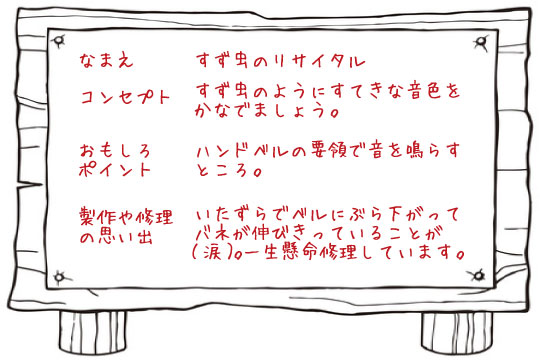 なまえ すず虫のリサイタル
コンセプト すず虫のようにすてきな音色を
かなでましょう。
おもしろ ハンドベルの要領で音を鳴らす
ポイント ところ。
製作や修理 いたずらでベルにぶら下がって
の思い出 バネが伸びきっていることが
(涙)。一生懸命修理しています。